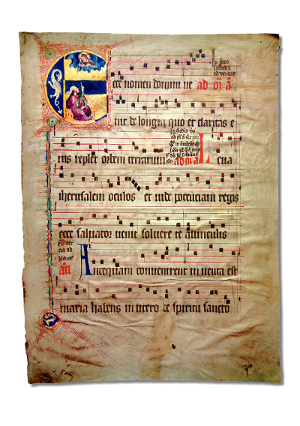 Ecce nomen domini ve
nit de longin quo et claritas e
ius replet orbem terrarum Leua
iherusalem oculos et vide potenciam regis
ecce saluator venit soluere te a vinculis
an Antequam conuenirent inuenta est
maria habens in utero de spiritu sancto